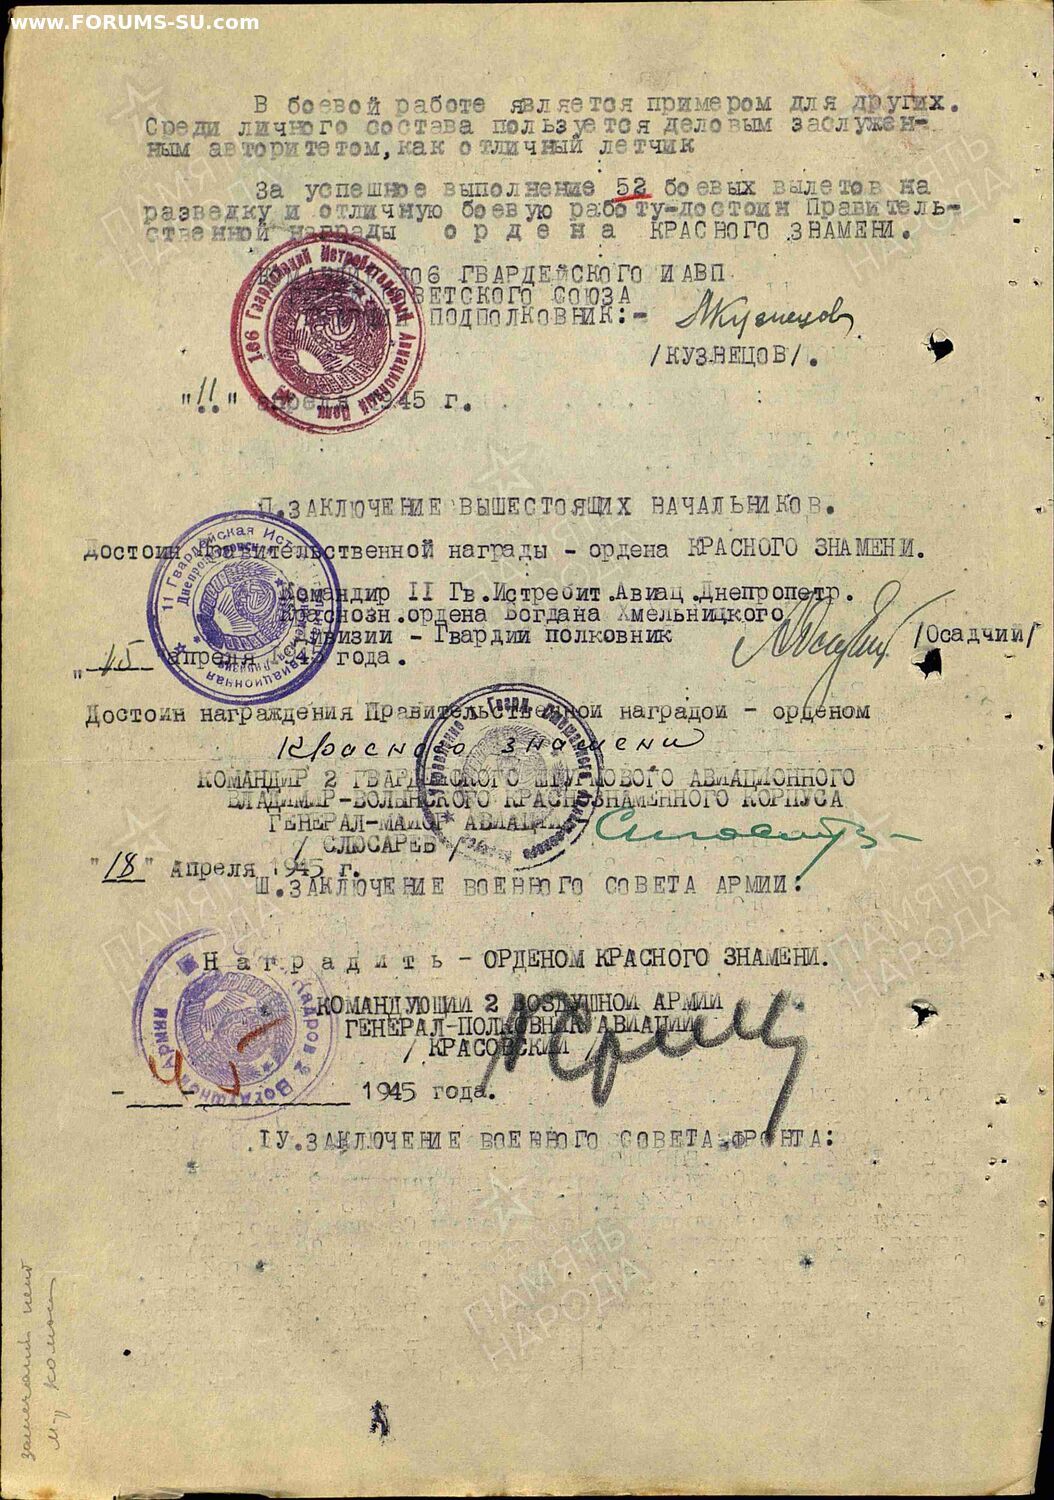 www.FORUMS-SU.com
В боевой работе является примером для других.
Среди личного состава пользуется деловым заслужен-
ным авторитетом, как отличный летчик
За успешное выполнение 52 боевых вылетов на
разведку и отличную боевую работу-достоин Правитель-
ственной награды ордена КРАСНОГО ЗНАМЕНИ.
106 ГВАРДЕЙСКОГО ИАВП
СОВЕТСКОГО СОЮЗА
ПОДПОЛКОВНИК:-
/КУЗНЕЦОВ/.
"11" апреля 1945 г.
106 Гвардейский Истребительный Авиационный Полк
П.ЗАКЛЮЧЕНИЕ ВЫШЕСТОЯЩИХ НАЧАЛЬНИКОВ.
Достоин Правительственной награды - ордена КРАСНОГО ЗНАМЕНИ.
Командир II Гв.Истребит.Авиац.Днепропетр.
Краснозн.ордена Богдана Хмельницкого
Дивизии - Гвардии полковник
/Осадчий/
"15" апреля 1945 года.
Достоин награждения Правительственной наградой - орденом
Красного знамени
КОМАНДИР 2 ГВАРДЕЙСКОГО ШТУРМОВОГО АВИАЦИОННОГО
ВЛАДИМИР-ВОЛЫНСКОГО КРАСНОЗНАМЕННОГО КОРПУСА
ГЕНЕРАЛ-МАЙОР АВИАЦИИ
/ СЛЮСАРЕВ /
"18" Апреля 1945 г.
Ш.ЗАКЛЮЧЕНИЕ ВОЕННОГО СОВЕТА АРМИИ:
Наградить - ОРДЕНОМ КРАСНОГО ЗНАМЕНИ.
КОМАНДУЮЩИЙ 2 ВОЗДУШНОЙ АРМИИ
ГЕНЕРАЛ-ПОЛКОВНИК АВИАЦИИ
/ КРАСОВСКИЙ /
1945 года.
IУ.ЗАКЛЮЧЕНИЕ ВОЕННОГО СОВЕТА ФРОНТА:
ПАМЯТЬ
НАРОДА